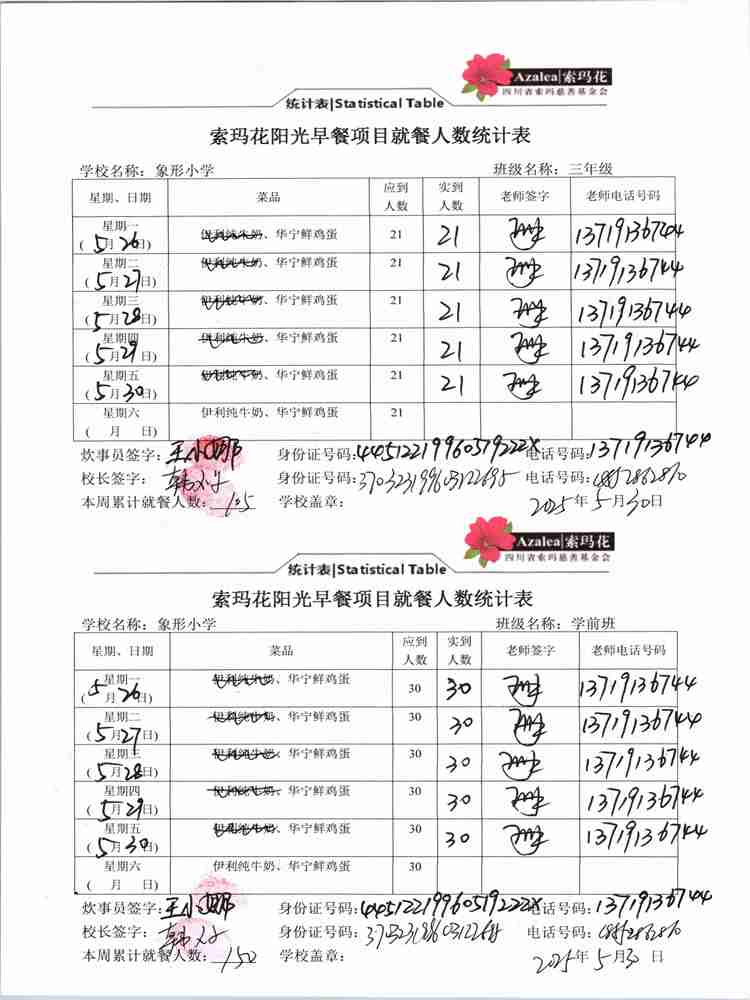 Azalea|索玛花
四川省索玛慈善基金会
统计表|Statistical Table
索玛花阳光早餐项目就餐人数统计表
学校名称：象形小学 班级名称：三年级
星期、日期 菜品 应到人数 实到人数 老师签字 老师电话号码
星期一 (5月26日) 伊利纯牛奶、华宁鲜鸡蛋 21 21 13719136744
星期二 (5月27日) 伊利纯牛奶、华宁鲜鸡蛋 21 21 13719136744
星期三 (5月28日) 伊利纯牛奶、华宁鲜鸡蛋 21 21 13719136744
星期四 (5月29日) 伊利纯牛奶、华宁鲜鸡蛋 21 21 13719136744
星期五 (5月30日) 伊利纯牛奶、华宁鲜鸡蛋 21 21 13719136744
星期六 ( 月 日) 伊利纯牛奶、华宁鲜鸡蛋 21
炊事员签字：王小娜 身份证号码：44512219960519222X 电话号码：13719136744
校长签字： 身份证号码： 电话号码：
本周累计就餐人数：105 学校盖章： 2025年5月30日
Azalea|索玛花
四川省索玛慈善基金会
统计表|Statistical Table
索玛花阳光早餐项目就餐人数统计表
学校名称：象形小学 班级名称：学前班
星期、日期 菜品 应到人数 实到人数 老师签字 老师电话号码
星期一 (5月26日) 伊利纯牛奶、华宁鲜鸡蛋 30 30 13719136744
星期二 (5月27日) 伊利纯牛奶、华宁鲜鸡蛋 30 30 13719136744
星期三 (5月28日) 伊利纯牛奶、华宁鲜鸡蛋 30 30 13719136744
星期四 (5月29日) 伊利纯牛奶、华宁鲜鸡蛋 30 30 13719136744
星期五 (5月30日) 伊利纯牛奶、华宁鲜鸡蛋 30 30 13719136744
星期六 ( 月 日) 伊利纯牛奶、华宁鲜鸡蛋 30
炊事员签字：王小娜 身份证号码：44512219960519222X 电话号码：13719136744
校长签字： 身份证号码： 电话号码：
本周累计就餐人数：150 学校盖章： 2025年5月30日